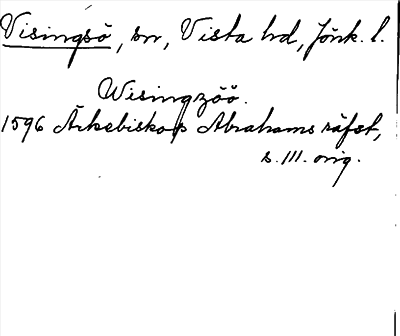 Visingsö, sn, Vista hd, Jönk. l.
Wisingzöö.
1596 Ärkebiskop Abrahams räfst,
s. 111. orig.